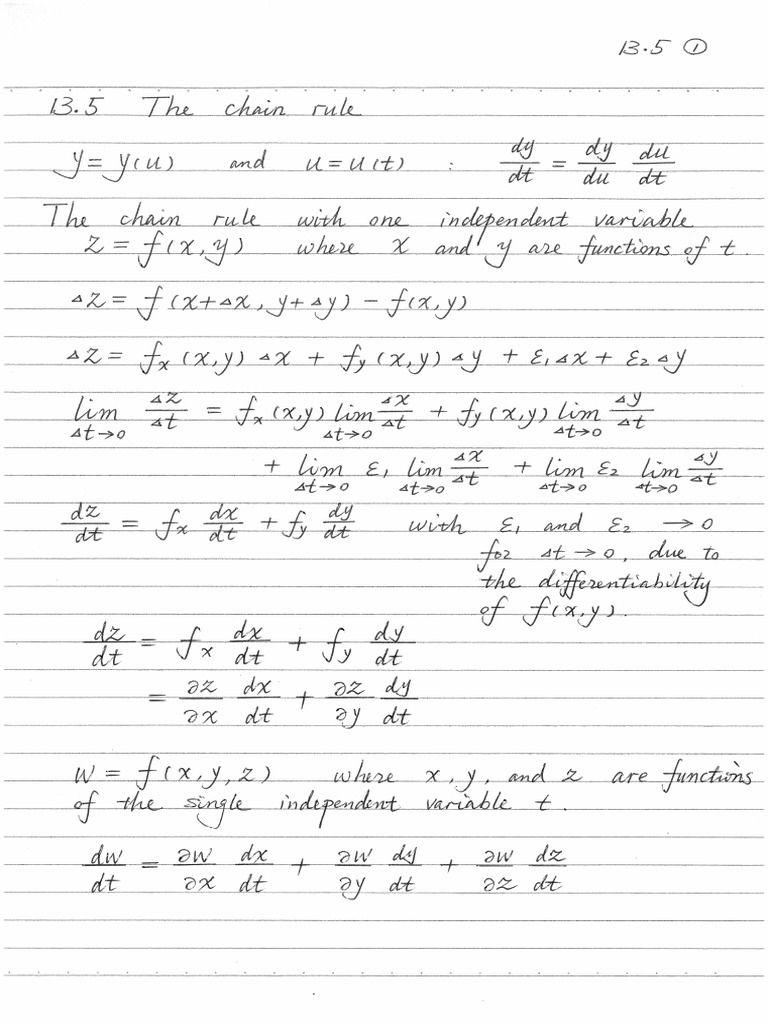 13.5 ①
13.5 The chain rule
y = y(u) and u = u(t) : dy/dt = dy/du du/dt
The chain rule with one independent variable
z = f(x,y) where x and y are functions of t.
Δz = f(x+Δx, y+Δy) − f(x,y)
Δz = fx(x,y) Δx + fy(x,y) Δy + ε1 Δx + ε2 Δy
lim Δt→0 Δz/Δt = fx(x,y) lim Δt→0 Δx/Δt + fy(x,y) lim Δt→0 Δy/Δt
+ lim Δt→0 ε1 lim Δt→0 Δx/Δt + lim Δt→0 ε2 lim Δt→0 Δy/Δt
dz/dt = fx dx/dt + fy dy/dt with ε1 and ε2 → 0
for Δt→0, due to
the differentiability
of f(x,y).
dz/dt = fx dx/dt + fy dy/dt
= ∂z/∂x dx/dt + ∂z/∂y dy/dt
w = f(x,y,z) where x, y, and z are functions
of the single independent variable t.
dw/dt = ∂w/∂x dx/dt + ∂w/∂y dy/dt + ∂w/∂z dz/dt